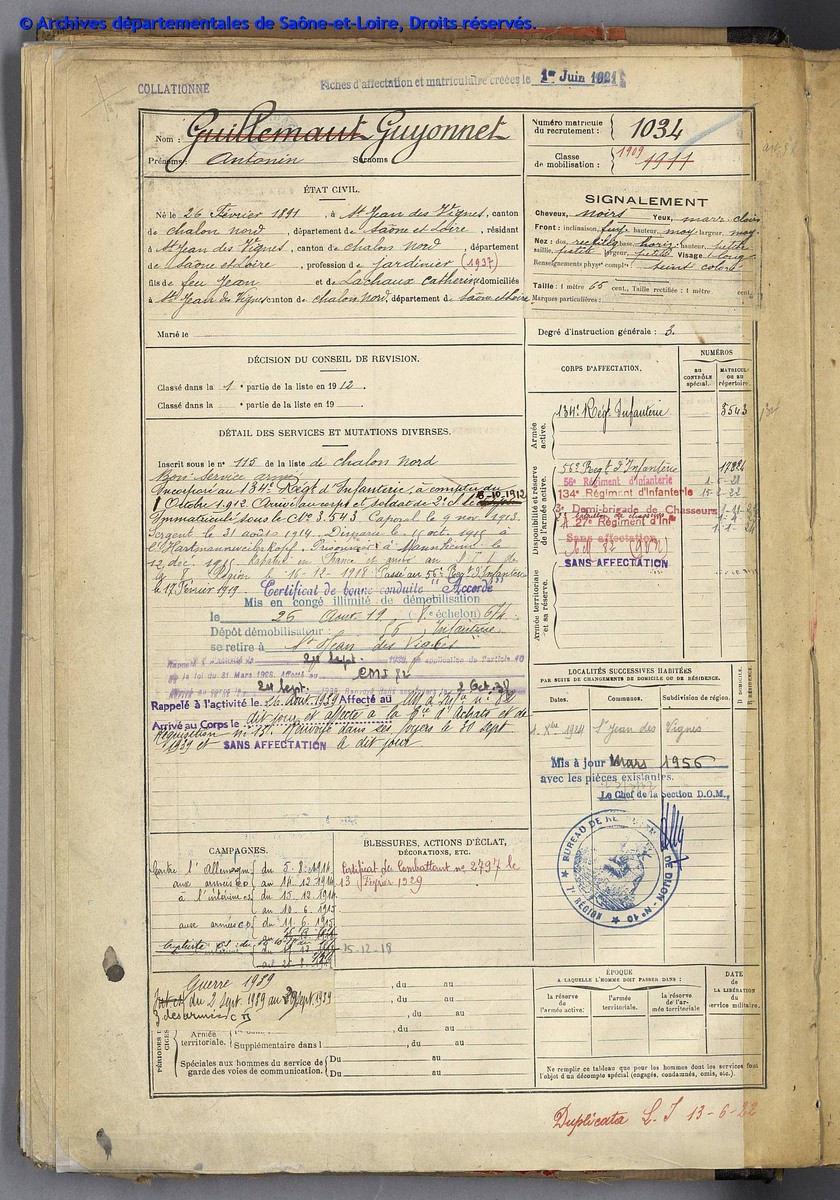 © Archives départementales de Saône-et-Loire, Droits réservés.
COLLATIONNÉ
Fiches d'affectation et matriculaire créées le 1er Juin 1921
Nom : Guillemaut Guyonnet
Prénoms : Antonin Surnoms
Numéro matricule du recrutement : 1034
Classe de mobilisation : 1909 1911
ÉTAT CIVIL.
Né le 26 Février 1891, à St Jean des Vignes, canton
de Chalon Nord, département de Saône et Loire, résidant
à St Jean des Vignes, canton de Chalon Nord, département
de Saône et Loire, profession de jardinier (1937)
fils de feu Jean et de Lachaux Catherine domiciliés
à St Jean des Vignes canton de Chalon Nord, département de Saône et Loire
Marié le
SIGNALEMENT
Cheveux, noirs Yeux, marr. clairs
Front : inclinaison, fuy hauteur, moy largeur, moy.
Nez : dos, rectilig base, horiz hauteur, petite
saillie, petite largeur, petite Visage long
Renseignements physques complres : teint coloré
Taille : 1 mètre 65 cent., Taille rectifiée : 1 mètre cent.
Marques particulières :
Degré d'instruction générale : 3.
DÉCISION DU CONSEIL DE REVISION.
Classé dans la 1e partie de la liste en 1912.
Classé dans la e partie de la liste en 19
DÉTAIL DES SERVICES ET MUTATIONS DIVERSES.
Inscrit sous le n° 115 de la liste de Chalon Nord
Bon service armé
Incorporé au 134e Régt d'Infanterie, à compter du
1 Octobre 1912. Arrivé au corps et soldat de 2e cl le 8-10-1912
Immatriculé sous le No 3.543 Caporal le 9 nov. 1913.
Sergent le 31 août 1914. Disparu le 15 oct. 1915 à
l'Hartmannwillerkopf. Prisonnier à Mannheim le
12 déc. 1915. Rapatrié en France et arrivé au
la 8 Région le 16-12-1918. Passé au 56e Régt d'Infanterie
le 17 Février 1919. Certificat de bonne conduite "Accordé"
Mis en congé illimité de démobilisation
le 26 Août 19 (7e échelon)
Dépôt démobilisateur 56 Infanterie
se retire à St Jean des Vignes
Rappelé à l'activité le 24 Sept. 1938, en application de l'article 40
de la loi du 31 Mars 1928. Affecté au CMI 82
Arrivé au corps le 24 Sept. 1938. Renvoyé dans ses foyers le 2 Oct. 38
Rappelé à l'activité le 26 Août 1939 Affecté au Mn d'Infie n° 82
Arrivé au Corps le dit jour et affecté à la d'Achats et de
Réquisition n° 15. Renvoyé dans ses foyers le 30 sept
1939 et SANS AFFECTATION à dit jour
CORPS D'AFFECTATION.
NUMÉROS
AU CONTRÔLE spécial.
MATRICULE OU AU répertoire.
Armée active.
134e Régt Infanterie 3543
Disponibilité et réserve de l'armée active.
56e Regt d'Infanterie
56e Régiment d'Infanterie 1-5-21
134e Régiment d'Infanterie 15-2-22
3e Demi-brigade de Chasseurs
27e Régiment d'Infie
Sans affectation
SANS AFFECTATION
Armée territoriale et sa réserve.
LOCALITÉS SUCCESSIVES HABITÉES
PAR SUITE DE CHANGEMENTS DE DOMICILE OU DE RÉSIDENCE.
Dates. Communes. Subdivision de région. D. DOMICILE. R. RÉSIDENCE
1. Xbre 1924 St Jean des Vignes
Mis à jour Mars 1956
avec les pièces existantes.
Le Chef de la Section D.O.M.,
BUREAU DE RECRUTEMENT DE DIJON - N° 10 7e RÉGION
CAMPAGNES.
Contre l'Allemagne du 5.8.1914
aux armées au 14.12.1914
à l'intérieur du 15.12.1914
au 10.6.1915
aux armées du 11.6.1915
15-12-18
BLESSURES, ACTIONS D'ÉCLAT,
DÉCORATIONS, ETC.
Certificat de Combattant n° 2797 le
13 Février 1929
Guerre 1939
du 2 Sept. 1939 au 29 Sept. 1939
, du au
, du au
, du au
, du au
Armée territoriale.
Supplémentaire dans l , du au
Spéciales aux hommes du service de garde des voies de communication. Du au
Du au
ÉPOQUE
A LAQUELLE L'HOMME DOIT PASSER DANS :
la réserve de l'armée active.
l'armée territoriale.
la réserve de l'armée territoriale
DATE de LA LIBÉRATION du service militaire.
Ne remplir ce tableau que pour les hommes dont les services font
l'objet d'un décompte spécial (engagés, condamnés, omis, etc.).
Duplicata L. I 13-6-22